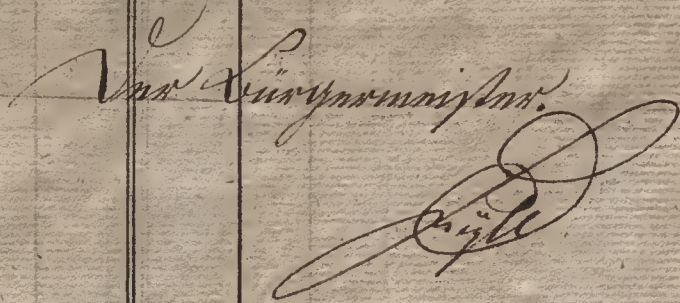 Der Bürgermeister.